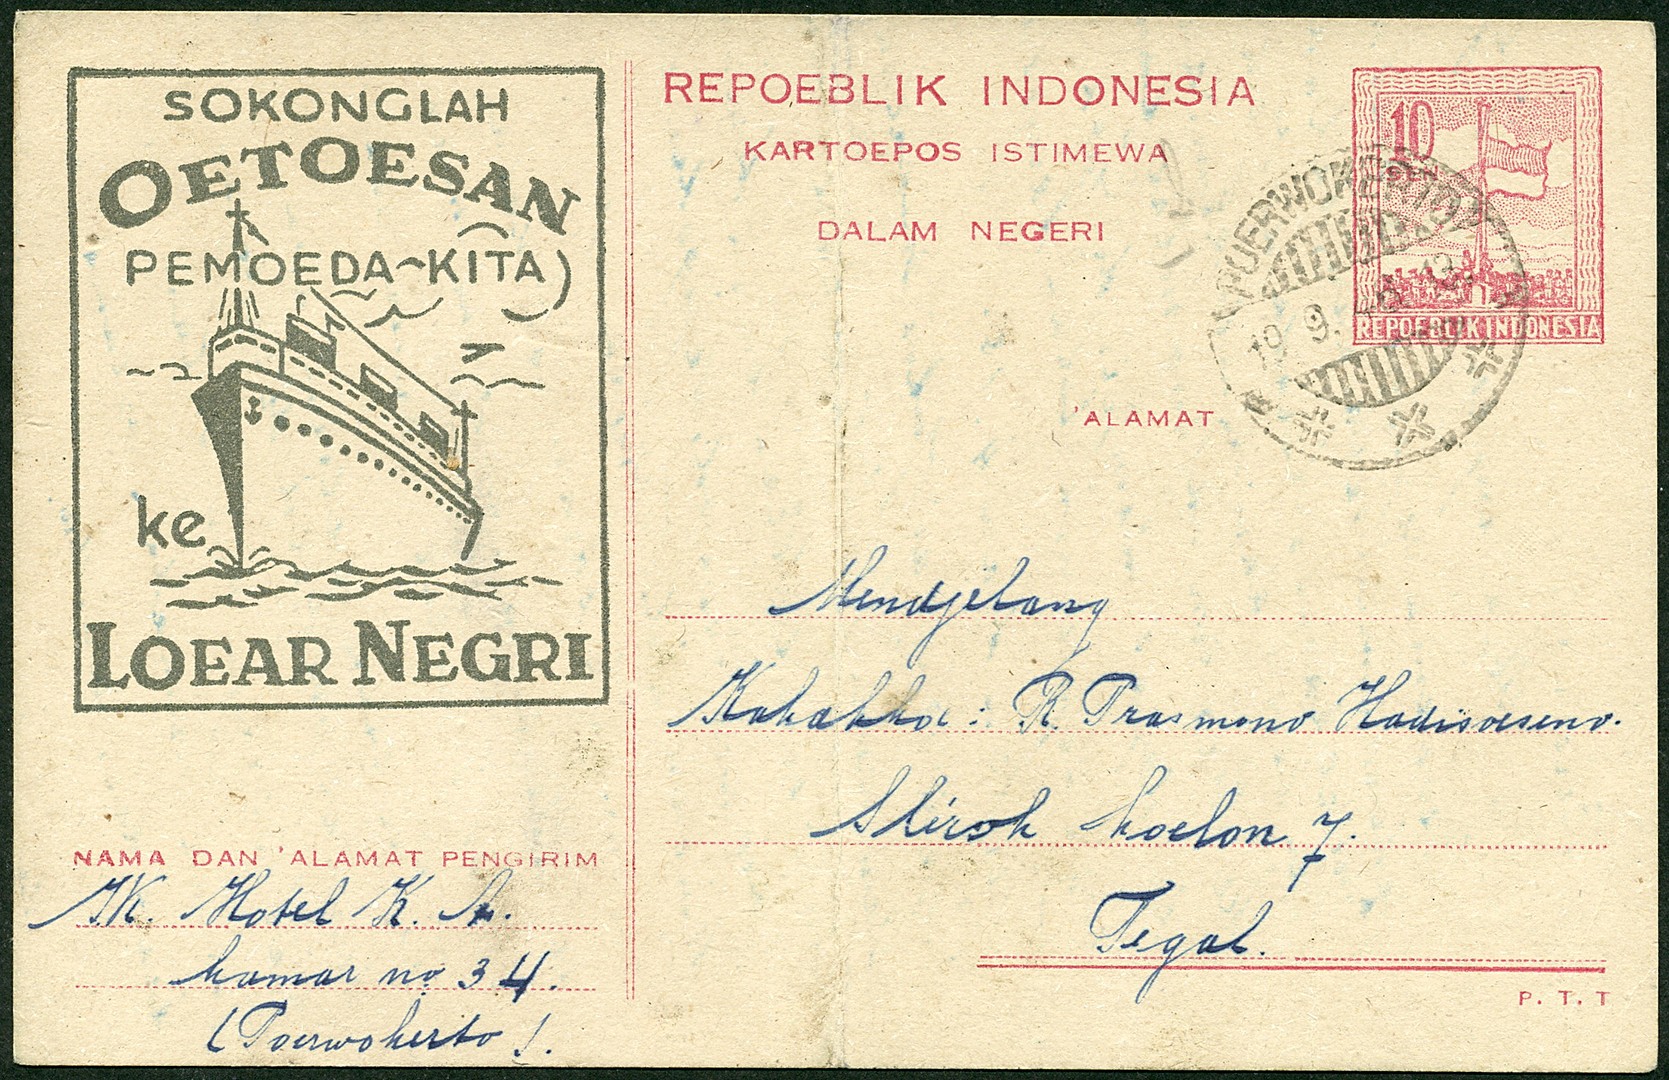 SOKONGLAH
OETOESAN
PEMOEDA~KITA)
ke
LOEAR NEGRI
NAMA DAN 'ALAMAT PENGIRIM
Hotel K. A.
kamar no 34.
(Poerwokerto).
REPOEBLIK INDONESIA
KARTOEPOS ISTIMEWA
DALAM NEGERI
10
SEN
REPOEBLIK INDONESIA
POERWOKERTO
19 9.
'ALAMAT
Mendjelang
Kakakkoe: R. Prasmono Hadisoeseno.
Slirok koelon 7.
Tegal.
P. T. T